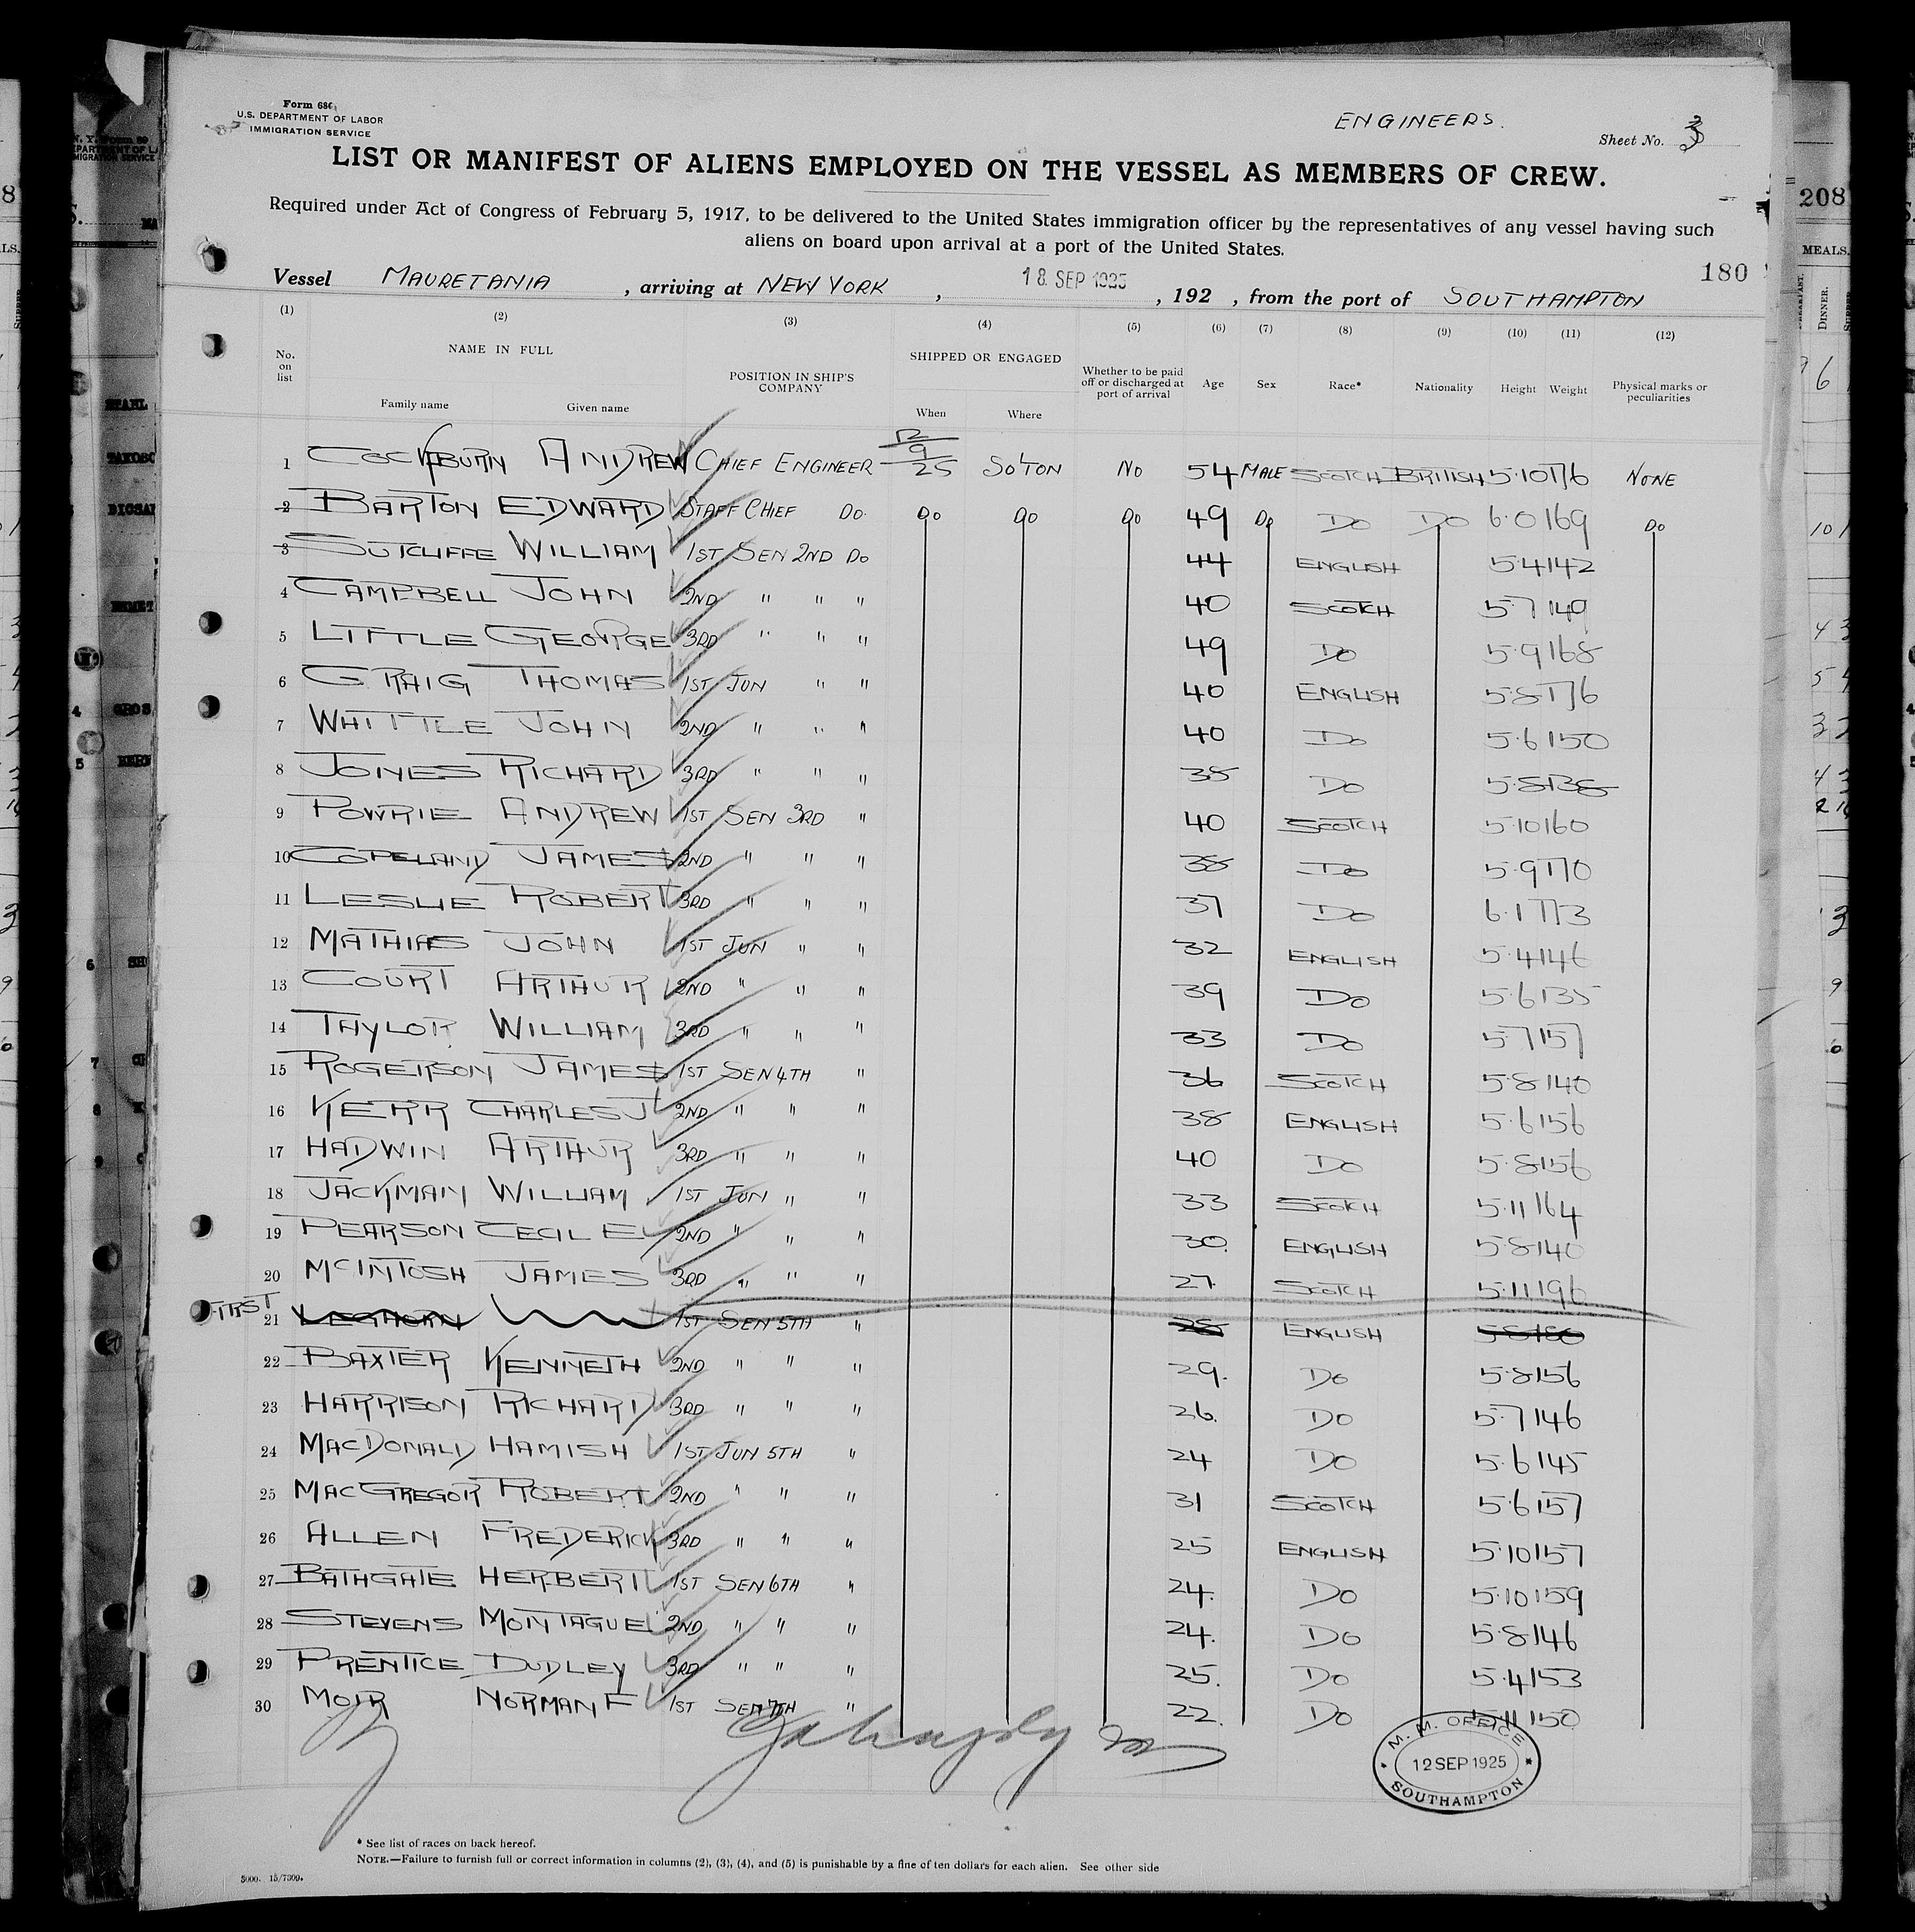 Form 680
U.S. DEPARTMENT OF LABOR
IMMIGRATION SERVICE
ENGINEERS.
Sheet No. 3
LIST OR MANIFEST OF ALIENS EMPLOYED ON THE VESSEL AS MEMBERS OF CREW.
Required under Act of Congress of February 5, 1917, to be delivered to the United States immigration officer by the representatives of any vessel having such
aliens on board upon arrival at a port of the United States.
180
Vessel MAURETANIA, arriving at NEW YORK, 18 SEP 1925, 192 , from the port of SOUTHAMPTON
(1) (2) (3) (4) (5) (6) (7) (8) (9) (10) (11) (12)
No. on list NAME IN FULL Family name Given name POSITION IN SHIP'S COMPANY SHIPPED OR ENGAGED When Where Whether to be paid off or discharged at port of arrival Age Sex Race* Nationality Height Weight Physical marks or peculiarities
1 COCKBURN ANDREW CHIEF ENGINEER 12/9/25 SO'TON NO 54 MALE SCOTCH BRITISH 5.10 176 NONE
2 BARTON EDWARD STAFF CHIEF DO. DO DO DO 49 DO DO DO 6.0 169 DO
3 SUTCLIFFE WILLIAM 1ST SEN 2ND DO 44 ENGLISH 5.4 142
4 CAMPBELL JOHN 2ND " " " 40 SCOTCH 5.7 149
5 LITTLE GEORGE 3RD " " " 49 DO 5.9 168
6 GRAIG THOMAS 1ST JUN " " 40 ENGLISH 5.8 176
7 WHITTLE JOHN 2ND " " " 40 DO 5.6 150
8 JONES RICHARD 3RD " " " 38 DO 5.8 138
9 POWRIE ANDREW 1ST SEN 3RD " 40 SCOTCH 5.10 160
10 COPELAND JAMES 2ND " " " 38 DO 5.9 170
11 LESLIE ROBERT 3RD " " " 37 DO 6.1 173
12 MATHIAS JOHN 1ST JUN " " 32 ENGLISH 5.4 146
13 COURT ARTHUR 2ND " " " 39 DO 5.6 135
14 TAYLOR WILLIAM 3RD " " " 33 DO 5.7 157
15 ROGERSON JAMES 1ST SEN 4TH " 36 SCOTCH 5.8 140
16 KERR CHARLES J 2ND " " " 38 ENGLISH 5.6 156
17 HADWIN ARTHUR 3RD " " " 40 DO 5.8 156
18 JACKMAN WILLIAM 1ST JUN " " 33 SCOTCH 5.11 164
19 PEARSON CECIL E 2ND " " " 30. ENGLISH 5.8 140
20 MCINTOSH JAMES 3RD " " " 27. SCOTCH 5.11 196
FIRST 21 LEGHORN 1ST SEN 5TH " 28 ENGLISH
22 BAXTER KENNETH 2ND " " " 29. DO 5.8 156
23 HARRISON RICHARD 3RD " " " 26. DO 5.7 146
24 MACDONALD HAMISH 1ST JUN 5TH " 24 DO 5.6 145
25 MACGREGOR ROBERT 2ND " " " 31 SCOTCH 5.6 157
26 ALLEN FREDERICK 3RD " " " 25 ENGLISH 5.10 157
27 BATHGATE HERBERT 1ST SEN 6TH " 24. DO 5.10 159
28 STEVENS MONTAGUE 2ND " " " 24. DO 5.8 146
29 PRENTICE DUDLEY 3RD " " " 25. DO 5.4 153
30 MOIR NORMAN F 1ST SEN 7TH " 22. DO 5.11 150
M. M. OFFICE
12 SEP 1925
SOUTHAMPTON
* See list of races on back hereof.
NOTE.—Failure to furnish full or correct information in columns (2), (3), (4), and (5) is punishable by a fine of ten dollars for each alien. See other side
5000. 15/7309.
208
MEALS.
DINNER.